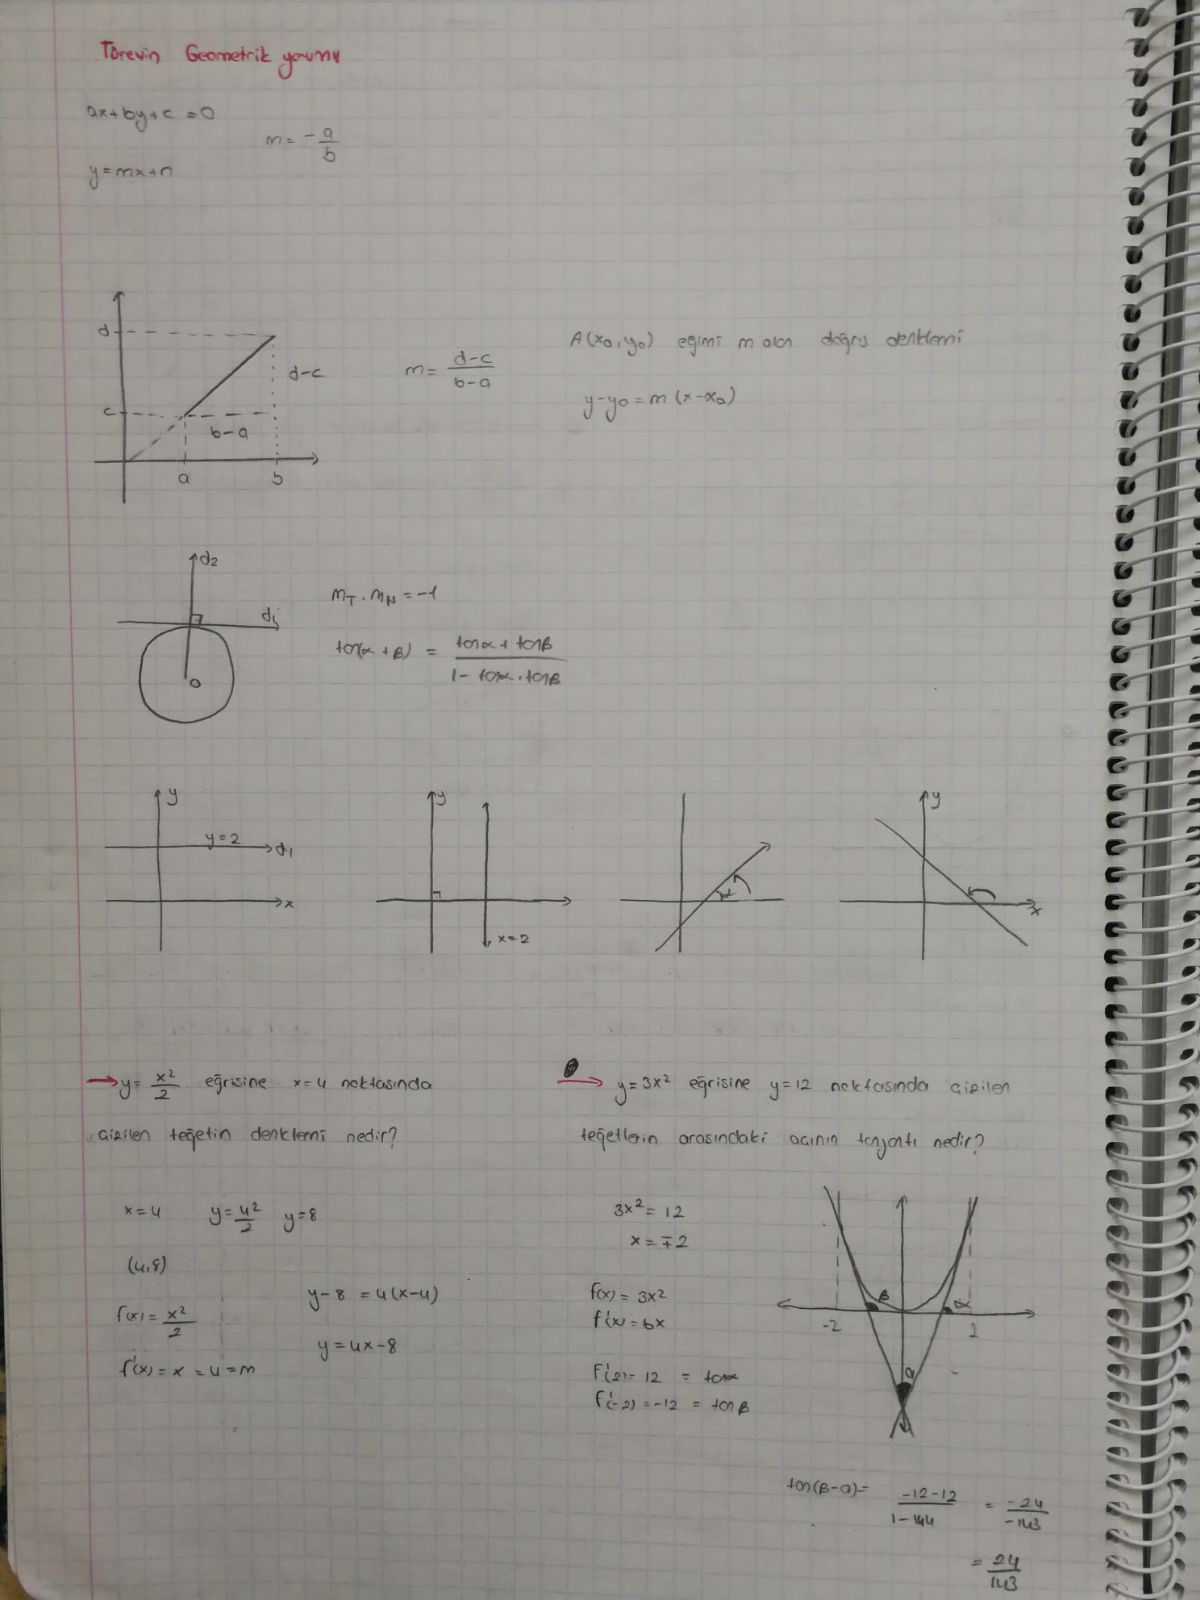 Türevin Geometrik yorumu
ax+by+c=0
m = -a/b
y=mx+n
d
d-c
c
b-a
a
b
m = d-c/b-a
A(x₀,y₀) eğimi m olan doğru denklemi
y-y₀=m(x-x₀)
d₂
d₁
O
m_T . m_N = -1
tan(α+β) = tanα + tanβ / 1 - tanα . tanβ
y
y=2
d₁
x
y
x=2
α
y
x
→ y = x²/2 eğrisine x=4 noktasında
çizilen teğetin denklemi nedir?
x=4 y=4²/2 y=8
(4,8)
f(x) = x²/2
f'(x) = x = 4 = m
y-8 = 4(x-4)
y=4x-8
→ y=3x² eğrisine y=12 noktasında çizilen
teğetlerin arasındaki açının tanjantı nedir?
3x² = 12
x = ∓2
f(x) = 3x²
f'(x) = 6x
f'(2) = 12 = tanα
f'(-2) = -12 = tanβ
β
α
-2
2
θ
tan(β-α) = -12-12 / 1-144 = -24/-143
= 24/143